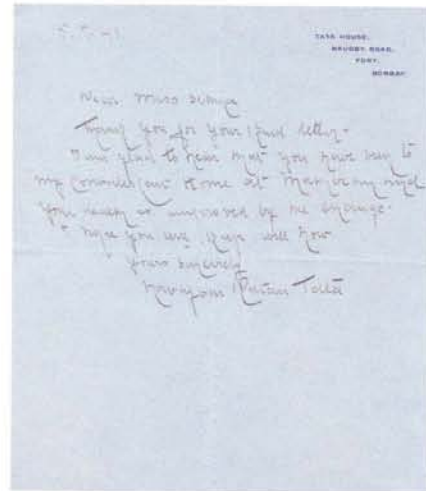 TATA HOUSE,
WAUDBY ROAD,
FORT,
BOMBAY.
Dear Miss
Thank you for your kind letter.
I am glad to hear that you have been to
my Convalescent Home at
your health is improved by the change.
I hope you will keep well now
Yours sincerely
Navajbai Ratan Tata